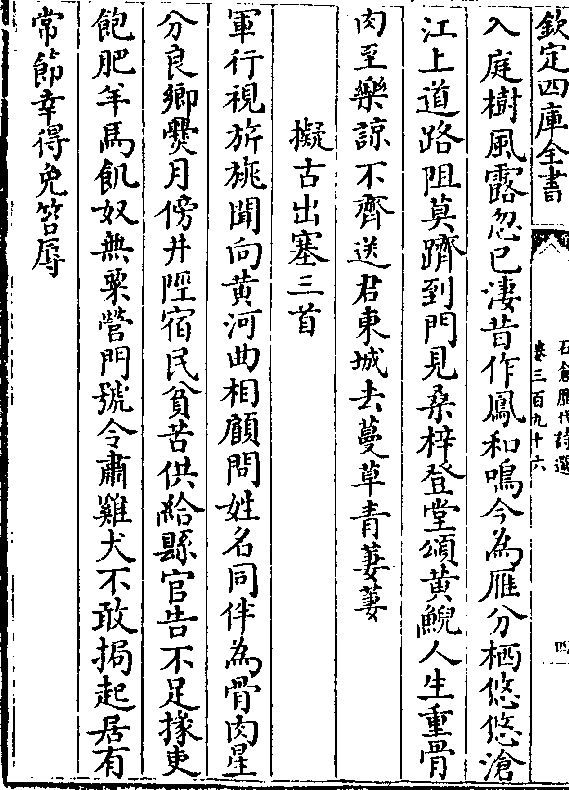 欽定四庫全書
石倉歷代詩選
卷三百九十六
四
入庭樹風露忽已凄昔作鳳和鳴今為雁分栖悠悠滄
江上道路阻莫躋到門見桑梓登堂頌黃鯢人生重骨
肉至樂諒不齊送君東城去蔓草青萋萋
擬古出塞三首
軍行視旂旐聞向黃河曲相顧問姓名同伴為骨肉星
分良鄉爨月傍井陘宿民貧苦供給縣官告不足掾吏
飽肥羊馬飢奴無粟營門號令肅雞犬不敢挶起居有
常節幸得免笞辱